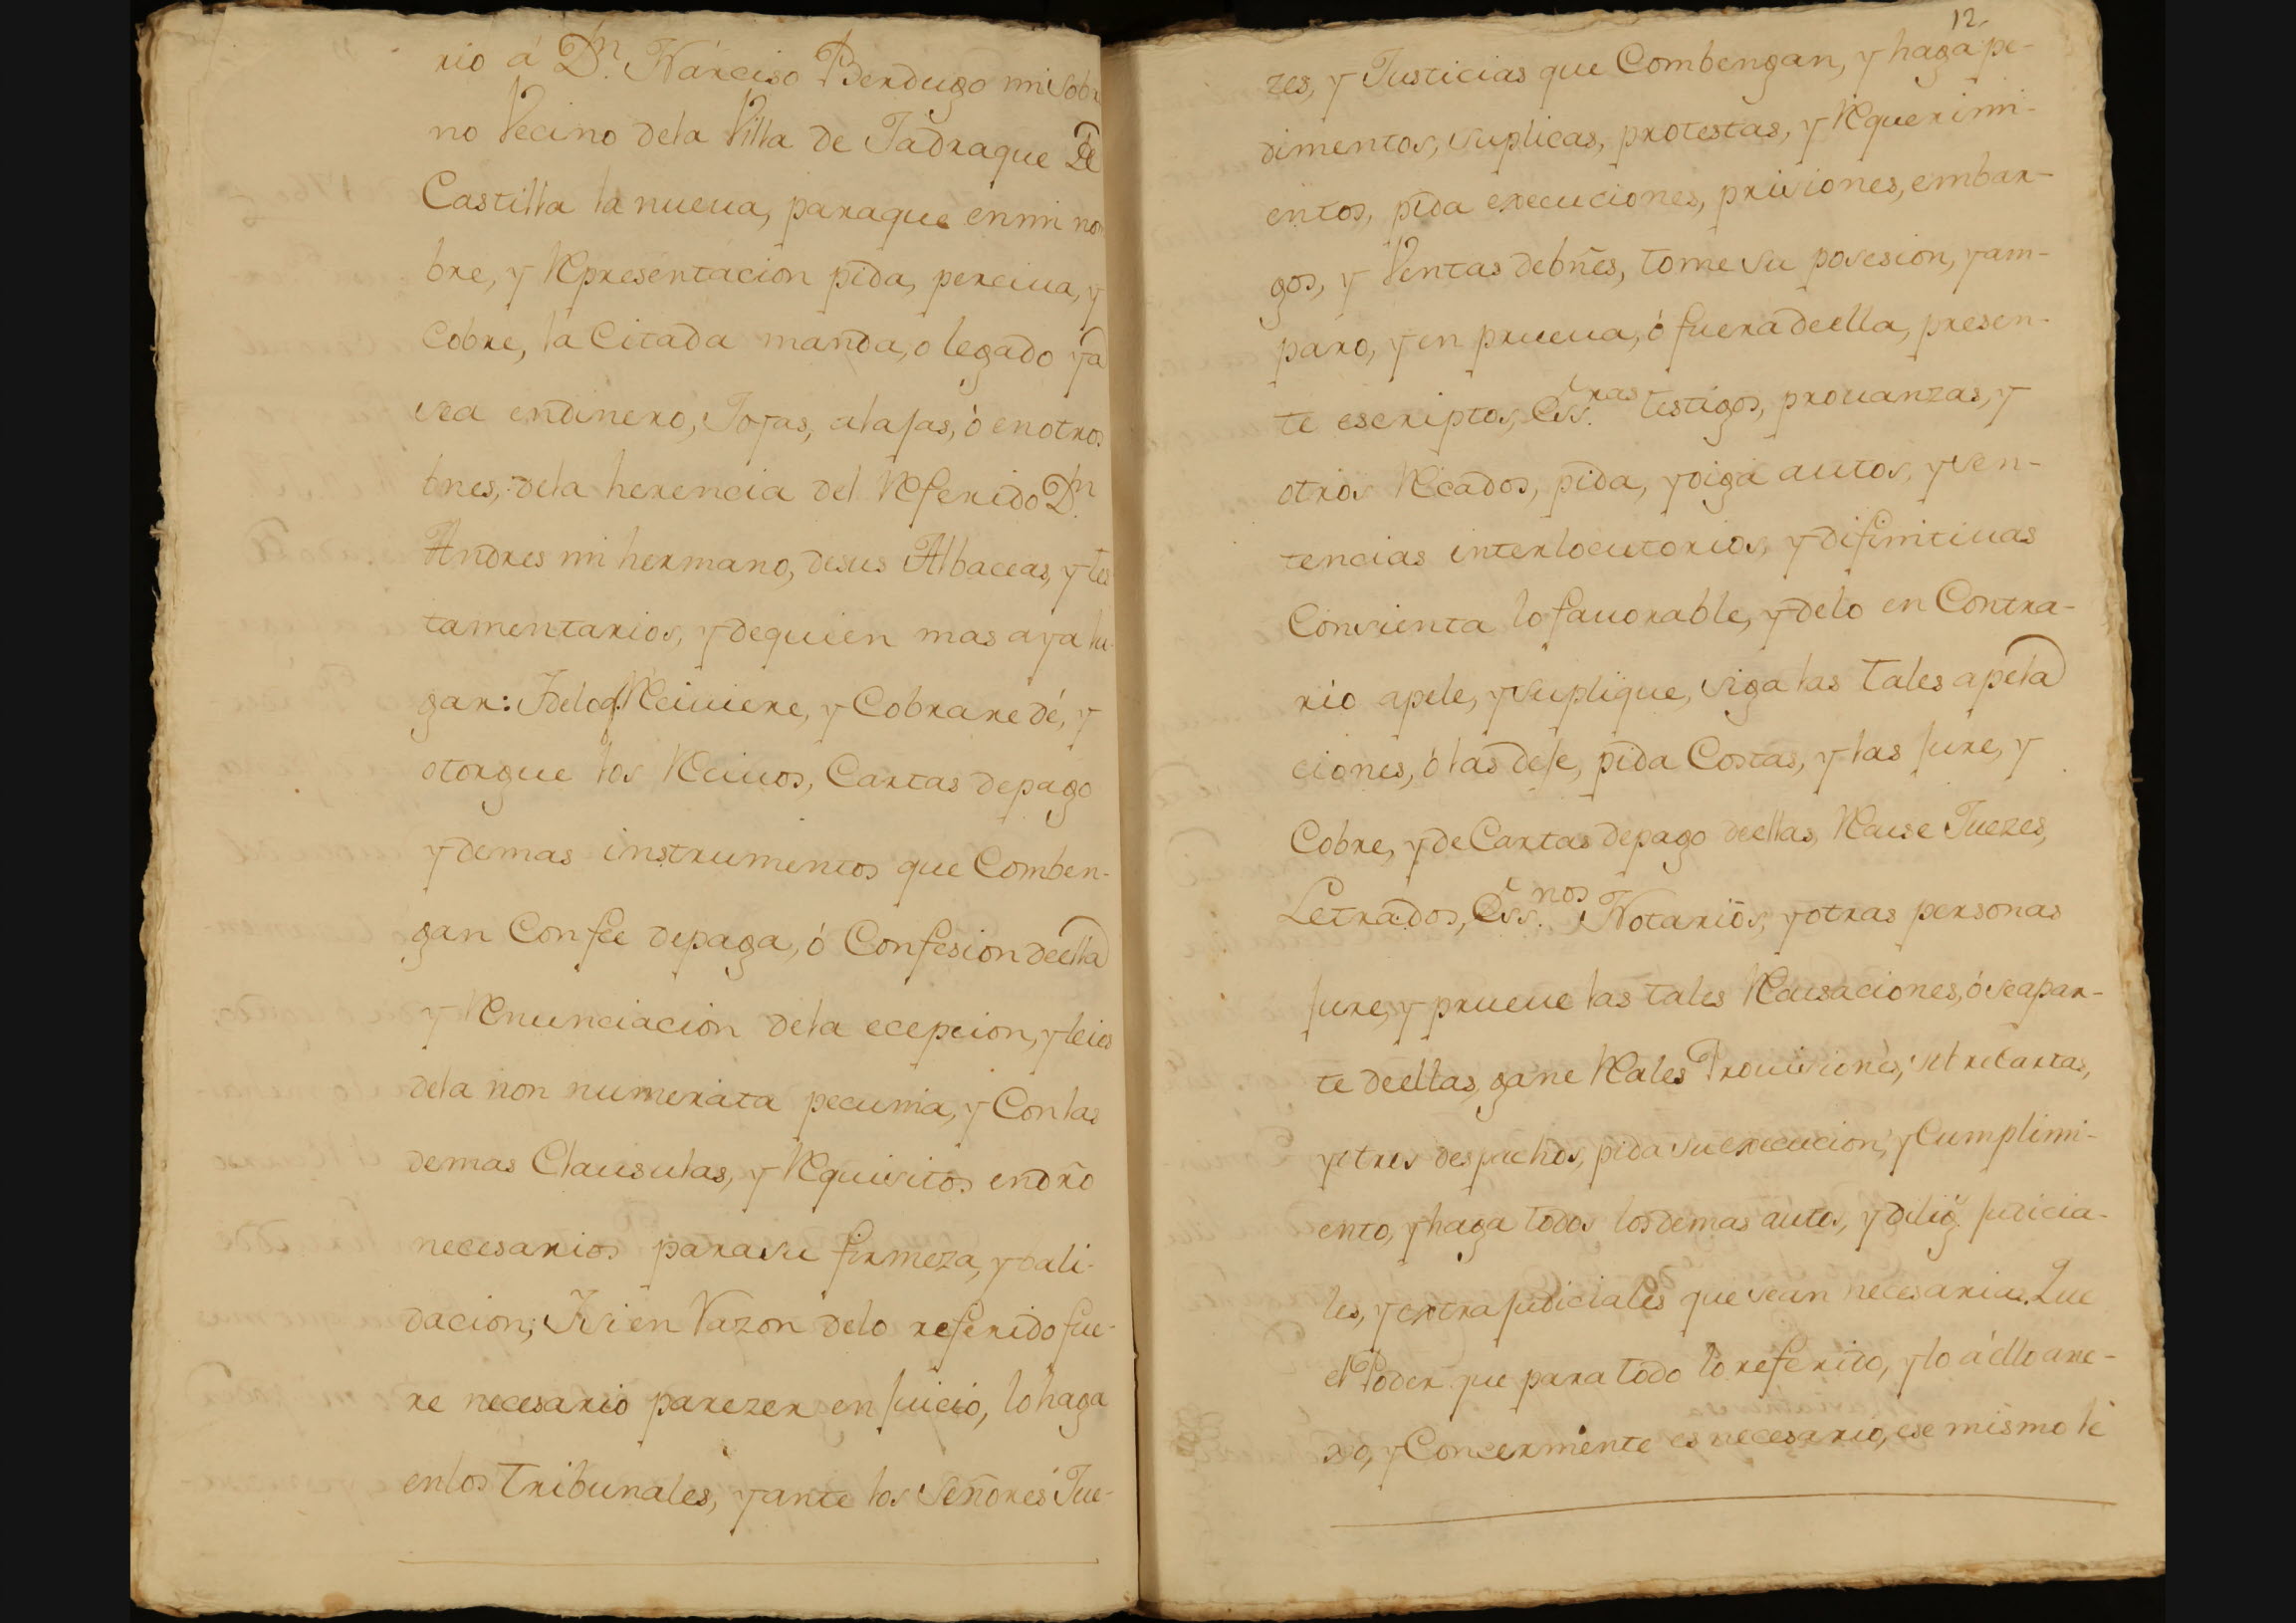 rio á Dn. Narciso Berdugo mi sobri
no Vecino dela Villa de Jadraque De
Castilla la nueua, paraque enmi nom
bre, y Representacion pida, perciua, y
Cobre, la Citada manda, o legado ya
sea endinero, Joyas, alajas, ó enotros
bnes, dela herencia del Referido Dn.
Andres mi hermano, desus Albaceas, y tes
tamentarios, y dequien mas aya lu-
gar: Y deloq. Reciuiere, y Cobrare dé, y
otorgue los Reciuos, Cartas depago
y demas instrumentos que Comben-
gan Confee depaga, ó Confesion deella
y Renunciacion dela ecepcion, y leies
dela non numerata pecunia, y Conlas
demas Clausulas, y Requisitos endro
necesarios parasu firmeza, y vali-
dacion; Y si en Razon delo referido fue-
re necesario parezer en juicio, lohaga
enlos Tribunales, y ante los Señores Jue-
12.
zes, y Justicias que Combengan, y haga pe-
dimentos, suplicas, protestas, y Requerimi-
entos, pida execuciones, prisiones, embar-
gos, y Ventas debñes, tome su posesion, y am-
paro, y en prueua, ó fuera deella, presen-
te escriptos, Ess.ras testigos, prouanzas, y
otros Recados, pida, y oiga autos, y sen-
tencias interlocutorios, y difinitiuas
Consienta lo fauorable, y delo en Contra-
rio apele, y suplique, siga las tales apela
ciones, ó las deje, pida Costas, y las jure, y
Cobre, y de Cartas depago deellas, Recuse Juezes,
Letrados, Ess.nos Notarios, y otras personas
jure, y prueue las tales Recusaciones, ó seapar-
te deellas, gane Reales Prouisiones, sobrecartas,
y otros despachos, pida su execucion, y Cumplimi-
ento, y haga todos losdemas autos, y dilig. judicia-
les, y extrajudiciales que sean necesarias. Que
el Poder que para todo lo referido, y lo á ello ane-
xo, y Concerniente es necesario, ese mismo le